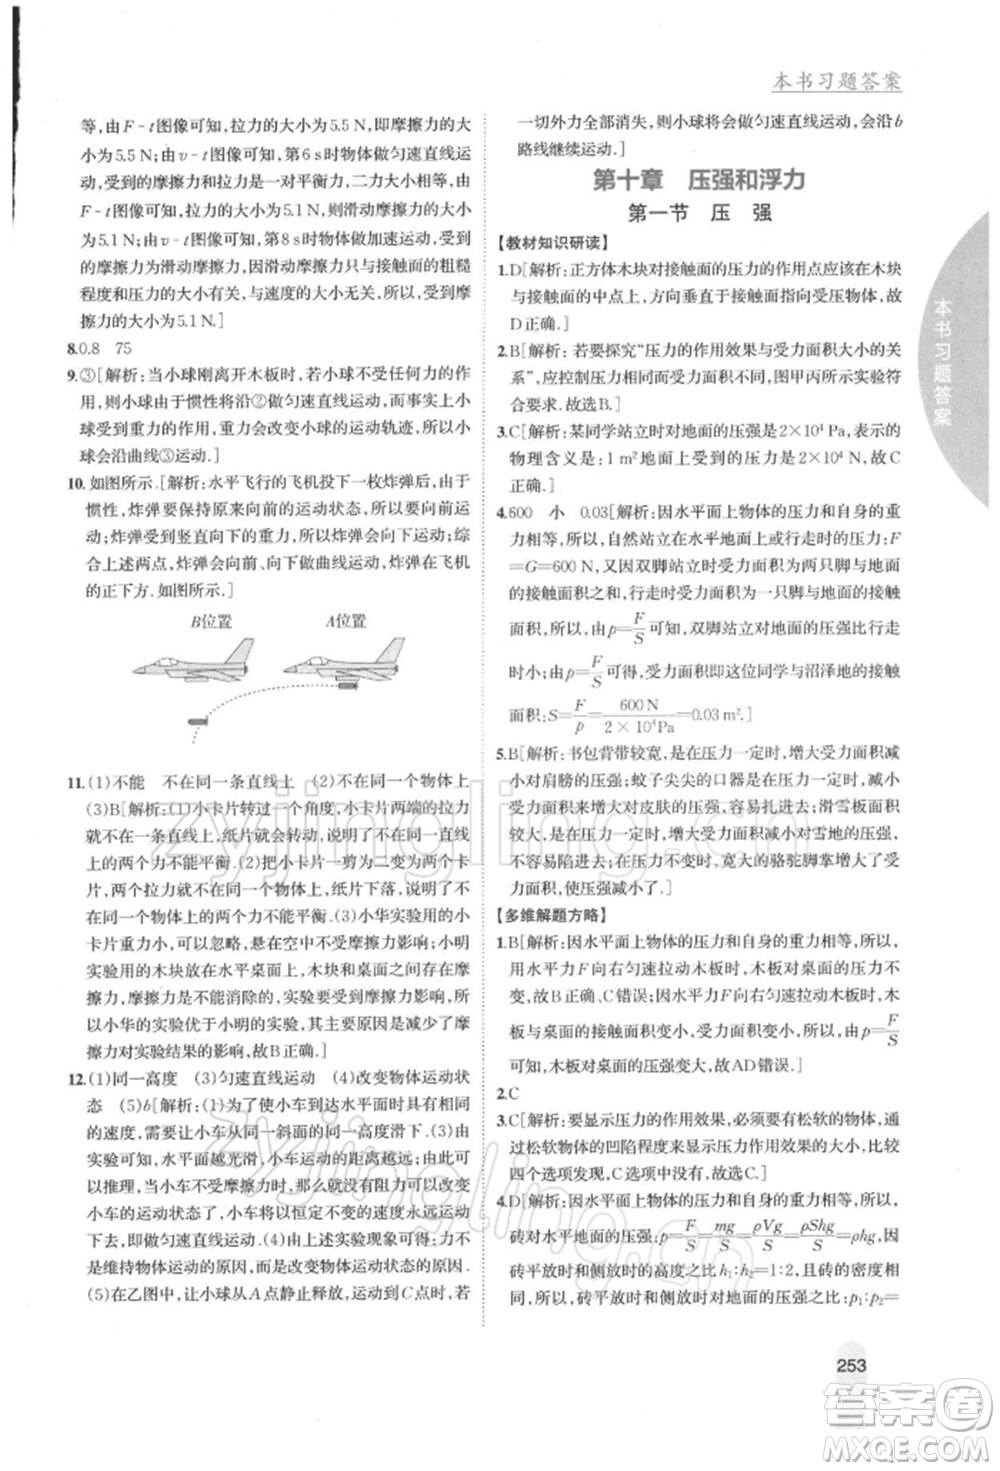 本书习题答案
等,由F-t图像可知,拉力的大小为5.5 N,即摩擦力的大
小为5.5 N;由v-t图像可知,第6 s时物体做匀速直线运
动,受到的摩擦力与拉力是一对平衡力,二力大小相等,由
F-t图像可知,拉力的大小为5.1 N,则滑动摩擦力大小为
5.1 N,由v-t图像可知,第8 s时物体做加速运动,受到
的摩擦力为滑动摩擦力,因滑动摩擦力只与接触面的粗糙
程度和压力的大小有关,与运动速度大小无关,所以,此时摩
擦力的大小为5.1 N.]
8.0.8 75
9.③[解析:当小球刚离开木板时,若小球不受任何力的作
用,则小球由于惯性将沿②做匀速直线运动.但实际上小
球要受到重力的作用,重力会改变小球的运动状态,故小
球会沿曲线③运动.]
10.如图所示.[解析:水平飞行的飞机投下一枚炸弹后,由于
惯性,炸弹要保持原来向前的运动状态,所以炸弹会向前
运动;炸弹受到竖直向下的重力,所以炸弹会向下运动,
综合上述两点,炸弹会向前、向下做曲线运动,炸弹在飞机
的正下方.如图所示.]
B位置 A位置
11.(1)不能 不在同一条直线上 (2)不在同一个物体上
(3)B[解析:(1)小卡片转过一个角度,小卡片两端的拉力
不在一条直线上,纸片就会转动,说明了不在同一直线上
的两个力不能平衡.(2)将小卡片一剪为二变为两个卡
片,两个拉力就不在同一个物体上,也不能平衡,说明了不
在同一个物体上的两个力不能平衡.(3)小华实验用的小
卡片重力小,可以忽略,悬在空中不受摩擦力影响;小明
实验用的木块放在水平桌面上,木块和桌面间的摩擦力
是客观存在的,不能消除的,实验过程受摩擦力影响,所
以小华的实验优于小明的实验,其原因是减少了摩
擦力对实验结果的影响,故B正确.]
12.(1)同一高度 (3)匀速直线运动 (4)改变物体运动状
态 (5)b[解析:(1)为了使小车到达水平面时具有相同
的速度,应让小车从同一斜面的同一高度滑下.(2)由实
验可知,水平面越光滑,小车运动的距离越远;(3)若水平
面光滑,小车不受摩擦力,那就没有阻力可以改变
小车的运动状态,小车将以恒定不变的速度永远运动下
去,即做匀速直线运动.(4)由上述实验现象可得:力不
是维持物体运动的原因,而是改变物体运动状态的原因.
(5)在乙图中,让小球从A点静止释放,运动到C点时,若
一切外力全部消失,则小球将会做匀速直线运动,会沿b
路线继续运动.]
第十章 压强和浮力
第一节 压 强
【教材知识研读】
1.D[解析:正方体木块对接触面的压力的作用点应该在木块
与接触面的中点上,方向垂直于接触面指向受压物体,故
D正确.]
2.B[解析:若要探究“压力的作用效果与受力面积大小的关
系”,应控制压力相同、受力面积不同,图甲丙所示实验符
合要求.故选B.]
3.C[解析:某同学站立时对地面的压强是2×10⁴ Pa,表示的
物理含义是:1 m²地面受到的压力是2×10⁴ N.]
4.600 小 0.03[解析:因水平面上物体的压力和自身的重
力相等,所以,自然站立在水平地面上或行走时的压力:F
=G=600 N;又因双脚站立时受力面积为两只脚与地面
的接触面积之和,行走时受力面积为一只脚与地面的接触
面积,所以,由p=F/S可知,双脚站立对地面的压强比行走
时小;由p=F/S可得,受力面积该同学与沼泽地的接触
面积:S=F/p=600 N/2×10⁴Pa=0.03 m².]
5.B[解析:书包背带较宽,是在压力一定时,增大受力面积减
小对肩膀的压强;蚊子尖尖的口器是在压力一定时,减小
受力面积,增大对皮肤的压强;滑雪板面积
较大,是在压力一定时,增大受力面积减小对雪地的压强,
不容易陷进去;宽大的骆驼脚掌,是在压力一定时,增大受
力面积,使压强减小了.]
【多维解题方略】
1.B[解析:因水平面上物体的压力和自身的重力相等,所以,
用水平力F向右匀速拉动木板时,木板对桌面的压力不
变,故B正确、C错误;因水平力F向右匀速拉动木板时,木
板与桌面的接触面积变小,受力面积变小,所以,由p=F/S
可知,木板对桌面的压强变大,故AD错误.]
2.C
3.C[解析:要显示压力的作用效果,必须要有松软的物体,通
过松软物体的凹陷程度来显示压力作用效果的大小,比较
四个选项发现,C选项中有海绵,故选C.]
4.D[解析:因水平面上物体的压力和自身的重力相等,所以,
砖对水平地面的压强:p=F/S=mg/S=ρVg/S=ρShg/S=ρhg,因
砖平放时和侧放时的高度之比h₁:h₂=1:2,且砖的密度相
同,所以,砖平放时和侧放时对地面的压强之比:p₁:p₂=
本书习题答案
253
zyjingling.cn
zyjingling.cn
答案圈
MXQE.COM